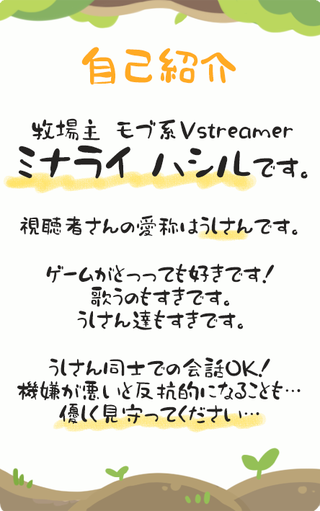 自己紹介
牧場主 モブ系Vstreamer
ミナライ ハシルです。
視聴者さんの愛称はうしさんです。
ゲームがとっっても好きです!
歌うのもすきです。
うしさん達もすきです。
うしさん同士での会話OK!
機嫌が悪いと反抗的になることも…
優しく見守ってください…